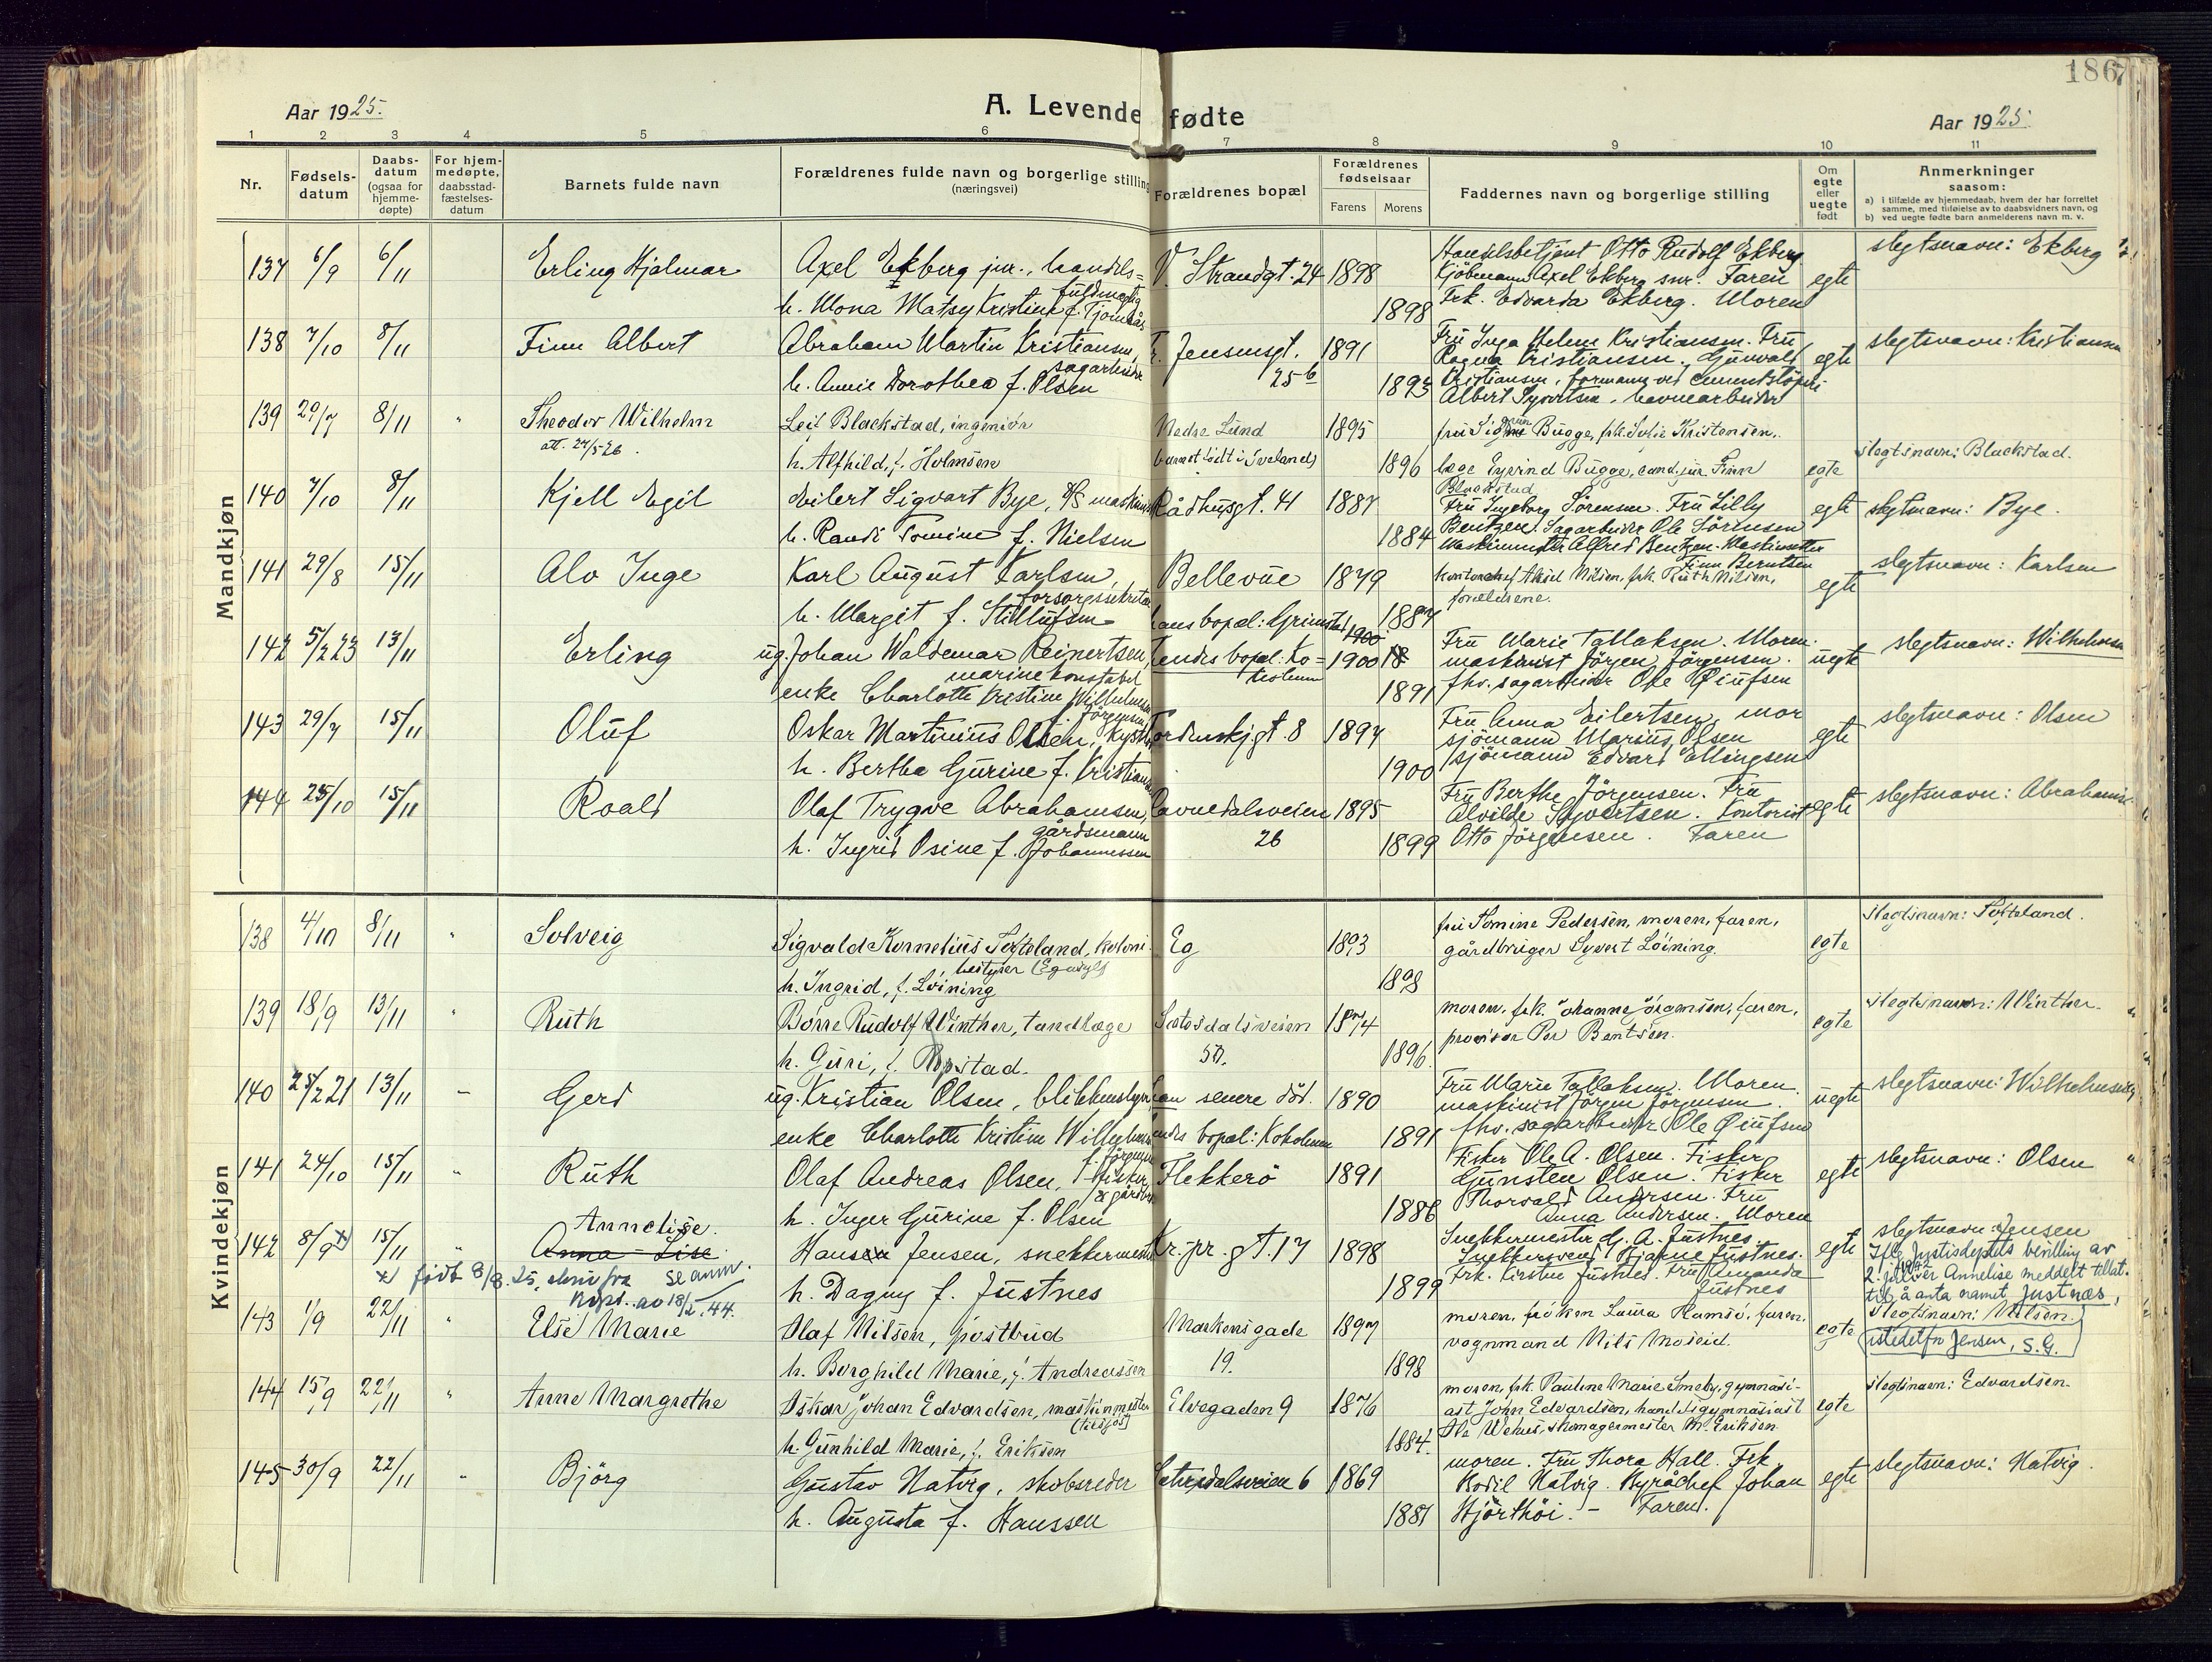 186
Aar 1925.
A. Levende fødte
Aar 1925.
1 2 3 4 5 6 7 8 9 10 11
Nr.
Fødsels-
datum
Daabs-
datum
(ogsaa for
hjemme-
døpte)
For hjem-
medøpte,
daabsstad-
fæstelses-
datum
Barnets fulde navn
Forældrenes fulde navn og borgerlige stilling
(næringsvei)
Forældrenes bopæl
Forældrenes
fødselsaar
Farens Morens
Faddernes navn og borgerlige stilling
Om
egte
eller
uegte
født
Anmerkninger
saasom:
a) I tilfælde av hjemmedaab, hvem der har forrettet
samme, med tilføielse av to daabsvidners navn, og
b) ved uegte fødte barn anmelderens navn m. v.
Mandkjøn
137 6/9 6/11 Erling Hjalmar Axel Ekberg jnr., handels=
fuldmægtig
h. Mona Matsy Kristine f.
V. Strandgt. 24 1898
1898
Otto Rudolf Ekberg
Kjøbmann Axel Ekberg snr. Faren
Frk. Edvarda Ekberg. Moren
egte
slegtsnavn: Ekberg
138 7/10 8/11 Finn Albert Abraham Martin Kristiansen,
sagarbeider
h. Annie Dorothea f. Olsen
Fr. Jensensgt.
25 b
1891
1893
Fru Inga Helene Kristiansen. Fru
Ragna Kristiansen. Gunvald
Kristiansen, formann ved cementstøperi
Albert Syvertsen. havnearbeider
egte
slegtsnavn: Kristiansen
139 29/7 8/11 " Theodor Wilhelm
att. 27/5 26.
Leif Blackstad, ingeniør
h. Alfhild, f. Holmsen
Nedre Lund
barnet født i Iveland)
1895
1896
Bugge, frk. Sylie Kristensen,
læge Eyvind Bugge, cand. jur. Finn
Blackstad
egte
slegtsnavn: Blackstad.
140 7/10 8/11 Kjell Egil Eilert Sigvart Bye, D/S maskinist
h. Randi Tomine f. Nielsen
Rådhusgt. 41 1887
1884
Fru Ingeborg Sørensen. Fru Lilly
Bentzen. Sagarbeider Ole Sørensen
Maskinmester Alfred Bentzen. Maskinsetter
Finn Berntsen
egte
slegtsnavn: Bye.
141 29/8 15/11 Alv Inge Karl August Karlsen,
forsorgssekretær
h. Margit f. Stillufsen
Bellevue
hans bopæl: Grimstad
1879
1887
Kontorchef Aksel Nilsen, frk. Ruth Nilsen,
forældrene.
egte
slegtsnavn: Karlsen
142 5/2 23 13/11 Erling ug. Johan Waldemar Reinertsen,
marinekonstabel
enke Charlotte Kristine Wilhelmsen
f. Jörgensen
hendes bopæl: Ko=
kolmen
1900
1900
1891
Fru Marie Tallaksen. Moren.
maskinist Jörgen Jörgensen.
fhv. sagarbeider Ole Øiufsen
uegte
slegtsnavn: Wilhelmsen
143 29/7 15/11 Oluf Oskar Martinius Olsen,
h. Bertha Gurine f. Kristiansen
Tordenskjgt. 8 1897
1900
Fru Anna Eilertsen, mor
sjömann Marius Olsen
sjömann Edvard Ellingsen
egte
slegtsnavn: Olsen
144 25/10 15/11 Roald Olaf Trygve Abrahamsen,
gårdsmann
h. Ingrid Osine f. Johannessen
Ravnedalsveien
26
1895
1899
Fru Berthe Jörgensen. Fru
Alvilde Syvertsen. Kontorist
Otto Jörgensen. Faren
egte
slegtsnavn: Abrahamsen
Kvindekjøn
138 4/10 8/11 " Solveig Sigvald Kornelius Tofteland, koloni-
bestyrer (Egasyl)
h. Ingrid, f. Löining
Eg 1893
1898
fru Tomine Pedersen, moren, faren,
gårdbruger Syvert Löining.
egte
slegtsnavn: Tofteland.
139 18/9 13/11 " Ruth Börre Rudolf Winther, tandlæge
h. Guri, f. Ropstad.
Sætesdalsveien
50.
1874
1896
moren, frk. Johanne Jörgensen, faren,
provisor Per Bentsen.
egte
slegtsnavn: Winther.
140 25/2 21 13/11 " Gerd ug. Kristian Olsen, blikkenslager
enke Charlotte Kristine Wilhelmsen
f. Jörgensen
han senere död.
hendes bopæl: Kokolmen
1890
1891
Fru Marie Tallaksen. Moren.
maskinist Jörgen Jörgensen.
fhv. sagarbeider Ole Øiufsen
uegte
slegtsnavn: Wilhelmsen
141 24/10 15/11 " Ruth Olaf Andreas Olsen, fisker
& gårdbr.
h. Inger Gurine f. Olsen
Flekkerö 1891
1886
Fisker Ole A. Olsen. Fisker
Gunsten Olsen. Fisker
Thorvald Andersen. Fru
Anna Andersen. Moren
egte
slegtsnavn: Olsen
142 8/9 x) 15/11 " Annelise.
Anna Lise.
x) født 8/8. 25, skriv fra
av 18/2. 44.
se anm.
Hans Jensen, snekkermester
h. Dagny f. Justnes
Kr. pr. gt. 17 1898
1899
Snekkermester G. A. Justnes.
Snekkersvend Bjarne Justnes.
Frk. Kirsten Justnes. Fru Amanda
Justnes
egte
slegtsnavn: Jensen
Iflg. Justisdepts bevilling av
2. juli 1942 er Annelise meddelt tillat.
til å anta navnet Justnæs,
istedetfor Jensen, S. G.
143 1/9 22/11 " Else Marie Olaf Nilsen, postbud
h. Borghild Marie, f. Andreassen
Markensgade
19.
1897
1898
moren, fröken Laura Hamsö, faren,
vognmand Nils Moseid.
egte
slegtsnavn: Nilsen.
144 15/9 22/11 " Anne Margrethe Oskar Johan Edvardsen, maskinmester
h. Gunhild Marie, f. Eriksen
Elvegaden 9 1876
1884.
moren, frk. Pauline Marie Smeby, gymnasi-
ast John Edvardsen, handelsgymnasiast
Ole Wehus, skomagermester M. Eriksen
egte
slegtsnavn: Edvardsen.
145 30/9 22/11 " Björg Gustav Hatvig, skibsreder
h. Augusta f. Hanssen
Setesdalsveien 6 1869
1881
moren. Fru Thora Hall. Frk.
Bodil Hatvig. Byråchef Johan
Hjörthöi. – Faren.
egte
slegtsnavn: Hatvig.